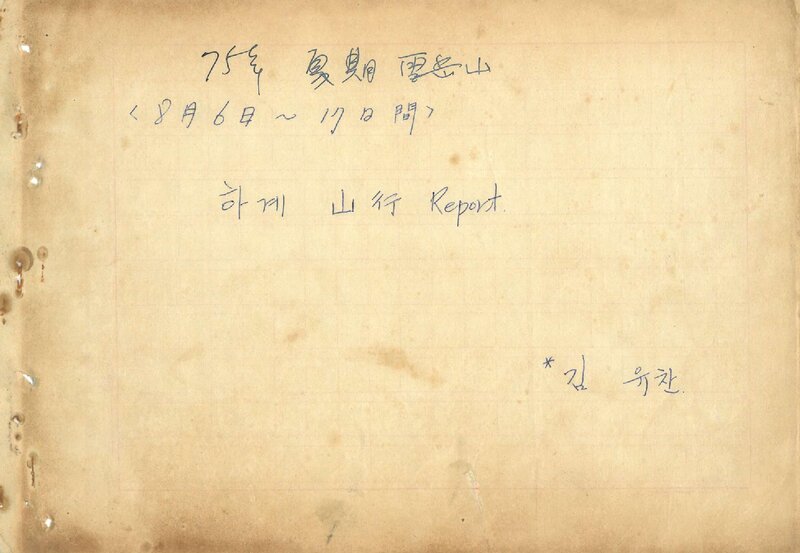 75年 夏期 雪岳山
<8月6日 ~ 17日間>
하계 山行 Report.
* 김 유찬.